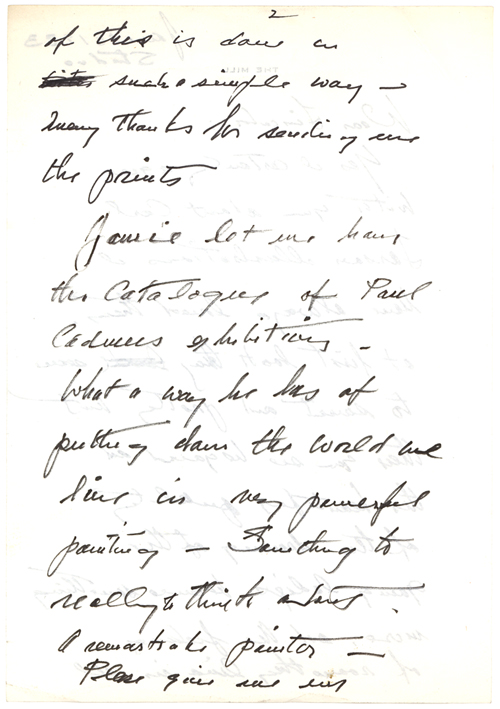 2
of this is done in
such a simple way –
Many thanks for sending me
the prints
Jamie let me have
the Catalogue of Paul
Cadmus exhibitions –
What a way he has of
putting down the world we
live in very powerful
painting – Something to
really to think about.
A remarkable painter –
Please give me my